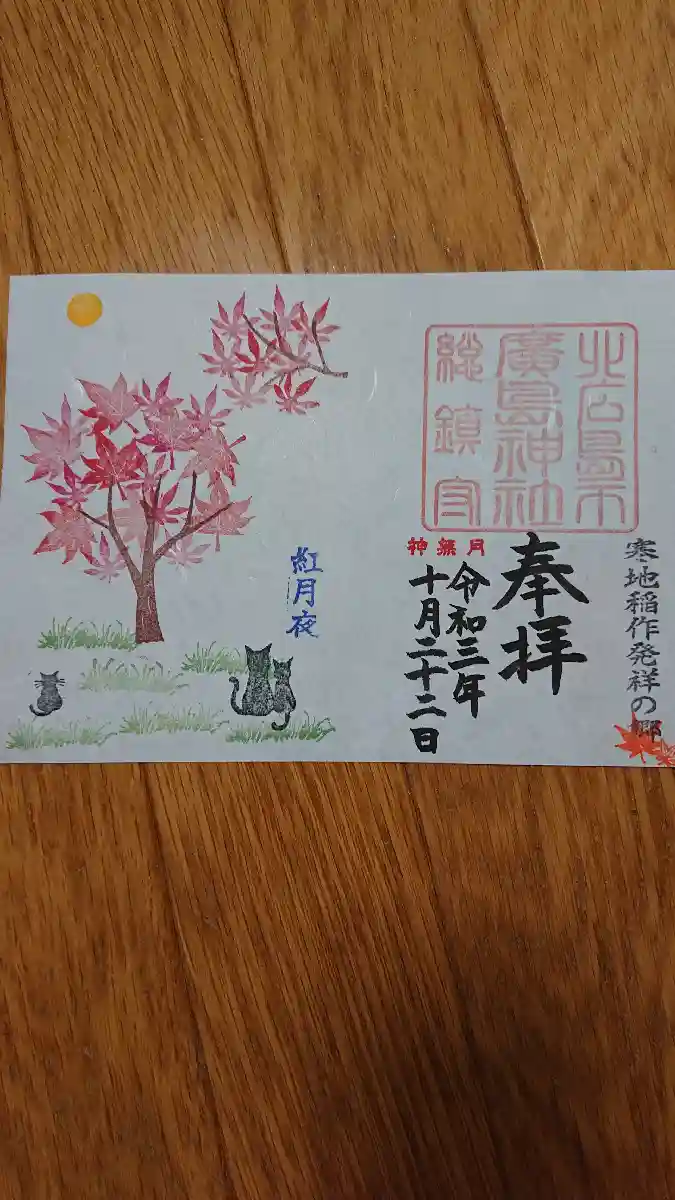 寒地稲作発祥の郷
北広島市
廣島神社
総鎮守
奉拝
神無月
令和三年
十月二十二日
紅月夜